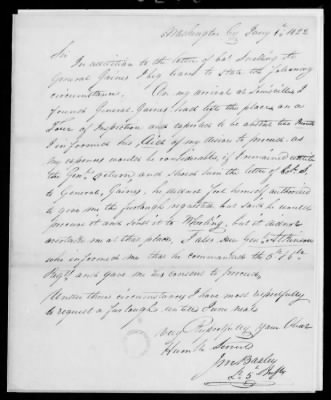 Washington City Jany 1st 1822
Sir
In addition to the letter of Col. Snelling to
General Gaines I beg leave to state the following
circumstances. On my arrival at Louisville I
found General Gaines had left the place on a
Tour of Inspection and expected to be absent two Months
I informed his Aid of my desire to proceed, as
my expences would be considerable, if I remained until
the Genls return and shewed him the letter of Col. S.
to General Gaines, he did not feel himself authorised
to give me the furlough requested but said he would
procure it and send it to Wheeling, but it did not
overtake me at that place, I also saw Genl Atkinson
who informed me that he commanded the 5th & 6th
Regts and gave me his consent to proceed,
Under these circumstances I have most respectfully
to request a furlough until June next
Very Respectfully Your Obdt
Humble Servt
Jno Baxley
Lt 5th Infty